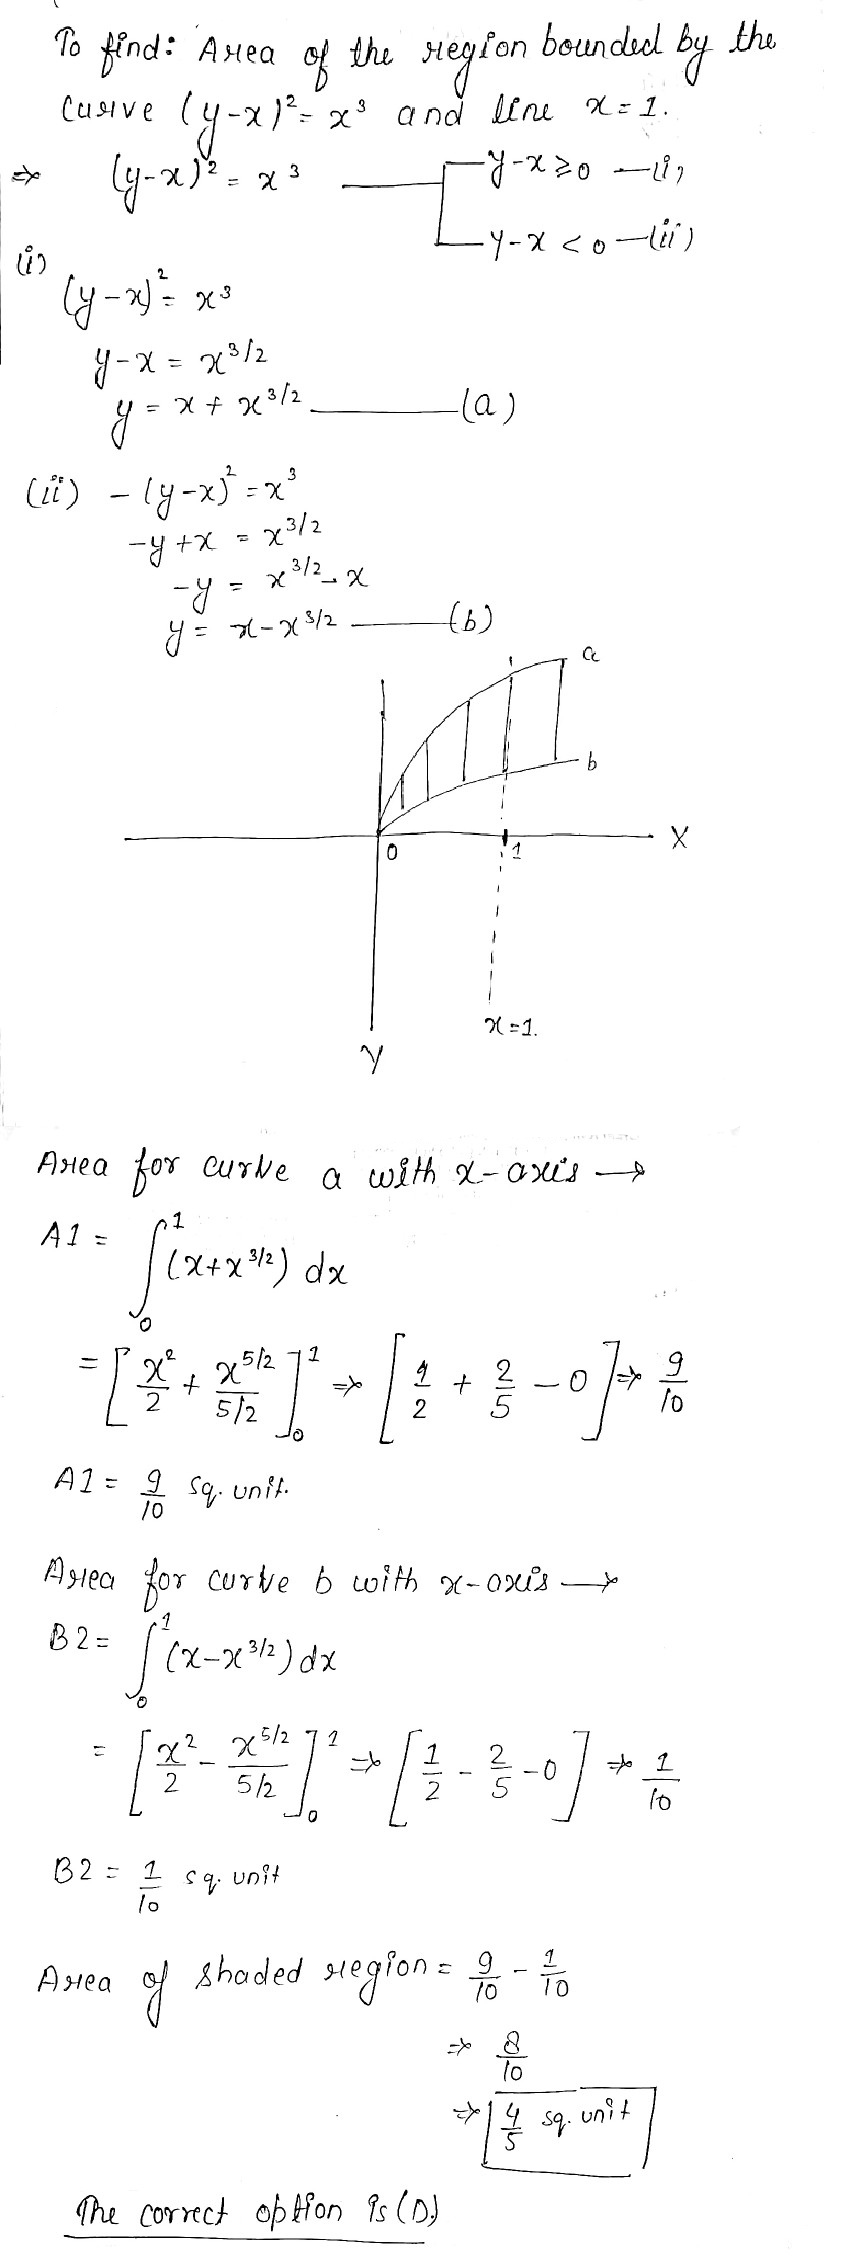 To find: Area of the region bounded by the
curve (y-x)² = x³ and line x = 1.
⇒ (y-x)² = x³ y-x ≥ 0 —(i)
y-x < 0 —(ii)
(i)
(y-x)² = x³
y-x = x^3/2
y = x + x^3/2 ———(a)
(ii) -(y-x)² = x³
-y+x = x^3/2
-y = x^3/2 - x
y = x - x^3/2 ———(b)
a
b
X
0
1
x=1.
Y
Area for curve a with x-axis →
A1 = ∫₀¹ (x+x^3/2) dx
= [x²/2 + x^5/2 / 5/2]₀¹ ⇒ [1/2 + 2/5 - 0] ⇒ 9/10
A1 = 9/10 sq. unit.
Area for curve b with x-axis →
B2 = ∫₀¹ (x-x^3/2) dx
= [x²/2 - x^5/2 / 5/2]₀¹ ⇒ [1/2 - 2/5 - 0] ⇒ 1/10
B2 = 1/10 sq. unit
Area of shaded region = 9/10 - 1/10
⇒ 8/10
⇒ 4/5 sq. unit
The correct option is (D.)